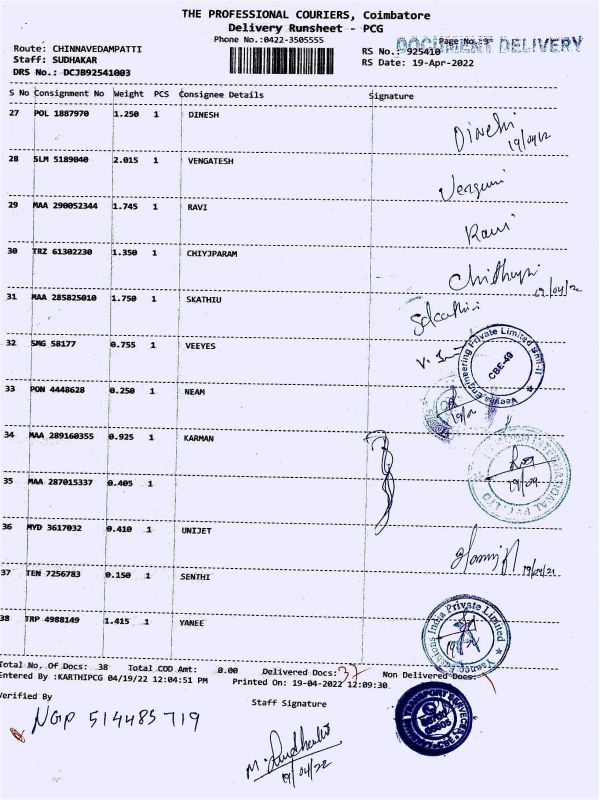 THE PROFESSIONAL COURIERS, Coimbatore
Delivery Runsheet - PCG
Phone No.:0422-3505555
Page No.:3
DOCUMENT DELIVERY
Route: CHINNAVEDAMPATTI
RS No.: 925410
Staff: SUDHAKAR
RS Date: 19-Apr-2022
DRS No.: DCJB92541003
S No Consignment No Weight PCS Consignee Details Signature
27 POL 1887970 1.250 1 DINESH
19/04/22
28 SLM 5189040 2.015 1 VENGATESH
29 MAA 290052344 1.745 1 RAVI
Ravi
30 TRZ 61302230 1.350 1 CHIYJPARAM
19/04/22
31 MAA 285825010 1.750 1 SKATHIU
32 SMG 58177 0.755 1 VEEYES
Veeyes Engineering Private Limited Unit-II
CBE-49
33 PON 4448628 0.250 1 NEAM
34 MAA 289160355 0.925 1 KARMAN
35 MAA 287015337 0.405 1
36 MYD 3617032 0.410 1 UNIJET
37 TEN 7256783 0.150 1 SENTHI
38 TRP 4988149 1.415 1 YANEE
India Private Limited
Total No. Of Docs: 38 Total COD Amt: 0.00 Delivered Docs: 37 Non Delivered Docs: 1
Entered By :KARTHIPCG 04/19/22 12:04:51 PM Printed On: 19-04-2022 12:09:30
Verified By
Staff Signature
NGP 514485719
M. Sudhakar
19/04/22